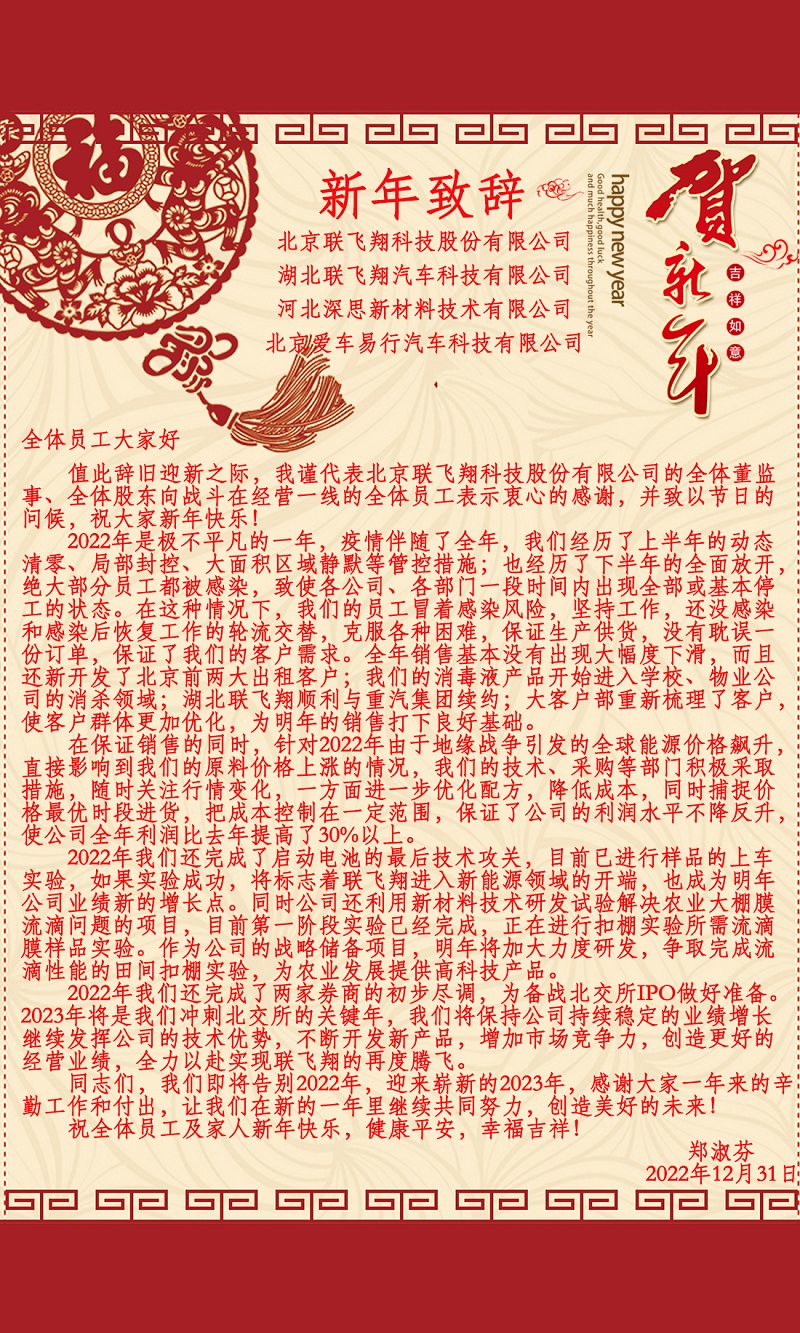 福
新年致辞
北京联飞翔科技股份有限公司
湖北联飞翔汽车科技有限公司
河北深思新材料技术有限公司
北京爱车易行汽车科技有限公司
happy new year
Good health,good luck
and much happiness throughout the year
贺新年
吉祥如意
全体员工大家好
值此辞旧迎新之际，我谨代表北京联飞翔科技股份有限公司的全体董监
事、全体股东向战斗在经营一线的全体员工表示衷心的感谢，并致以节日的
问候，祝大家新年快乐！
2022年是极不平凡的一年，疫情伴随了全年，我们经历了上半年的动态
清零、局部封控、大面积区域静默等管控措施；也经历了下半年的全面放开，
绝大部分员工都被感染，致使各公司、各部门一段时间内出现全部或基本停
工的状态。在这种情况下，我们的员工冒着感染风险，坚持工作，还没感染
和感染后恢复工作的轮流交替，克服各种困难，保证生产供货，没有耽误一
份订单，保证了我们的客户需求。全年销售基本没有出现大幅度下滑，而且
还新开发了北京前两大出租客户；我们的消毒液产品开始进入学校、物业公
司的消杀领域；湖北联飞翔顺利与重汽集团续约；大客户部重新梳理了客户，
使客户群体更加优化，为明年的销售打下良好基础。
在保证销售的同时，针对2022年由于地缘战争引发的全球能源价格飙升，
直接影响到我们的原料价格上涨的情况，我们的技术、采购等部门积极采取
措施，随时关注行情变化，一方面进一步优化配方，降低成本，同时捕捉价
格最优时段进货，把成本控制在一定范围，保证了公司的利润水平不降反升，
使公司全年利润比去年提高了30%以上。
2022年我们还完成了启动电池的最后技术攻关，目前已进行样品的上车
实验，如果实验成功，将标志着联飞翔进入新能源领域的开端，也成为明年
公司业绩新的增长点。同时公司还利用新材料技术研发试验解决农业大棚膜
流滴问题的项目，目前第一阶段实验已经完成，正在进行扣棚实验所需流滴
膜样品实验。作为公司的战略储备项目，明年将加大力度研发，争取完成流
滴性能的田间扣棚实验，为农业发展提供高科技产品。
2022年我们还完成了两家券商的初步尽调，为备战北交所IPO做好准备。
2023年将是我们冲刺北交所的关键年，我们将保持公司持续稳定的业绩增长
继续发挥公司的技术优势，不断开发新产品，增加市场竞争力，创造更好的
经营业绩，全力以赴实现联飞翔的再度腾飞。
同志们，我们即将告别2022年，迎来崭新的2023年，感谢大家一年来的辛
勤工作和付出，让我们在新的一年里继续共同努力，创造美好的未来！
祝全体员工及家人新年快乐，健康平安，幸福吉祥！
郑淑芬
2022年12月31日